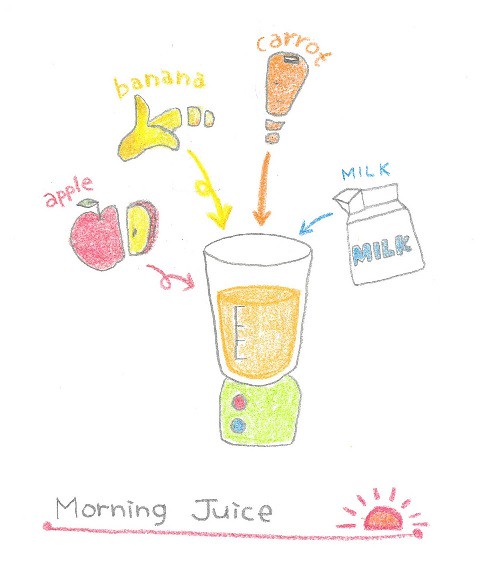 carrot
banana
MILK
apple
MILK
Morning Juice